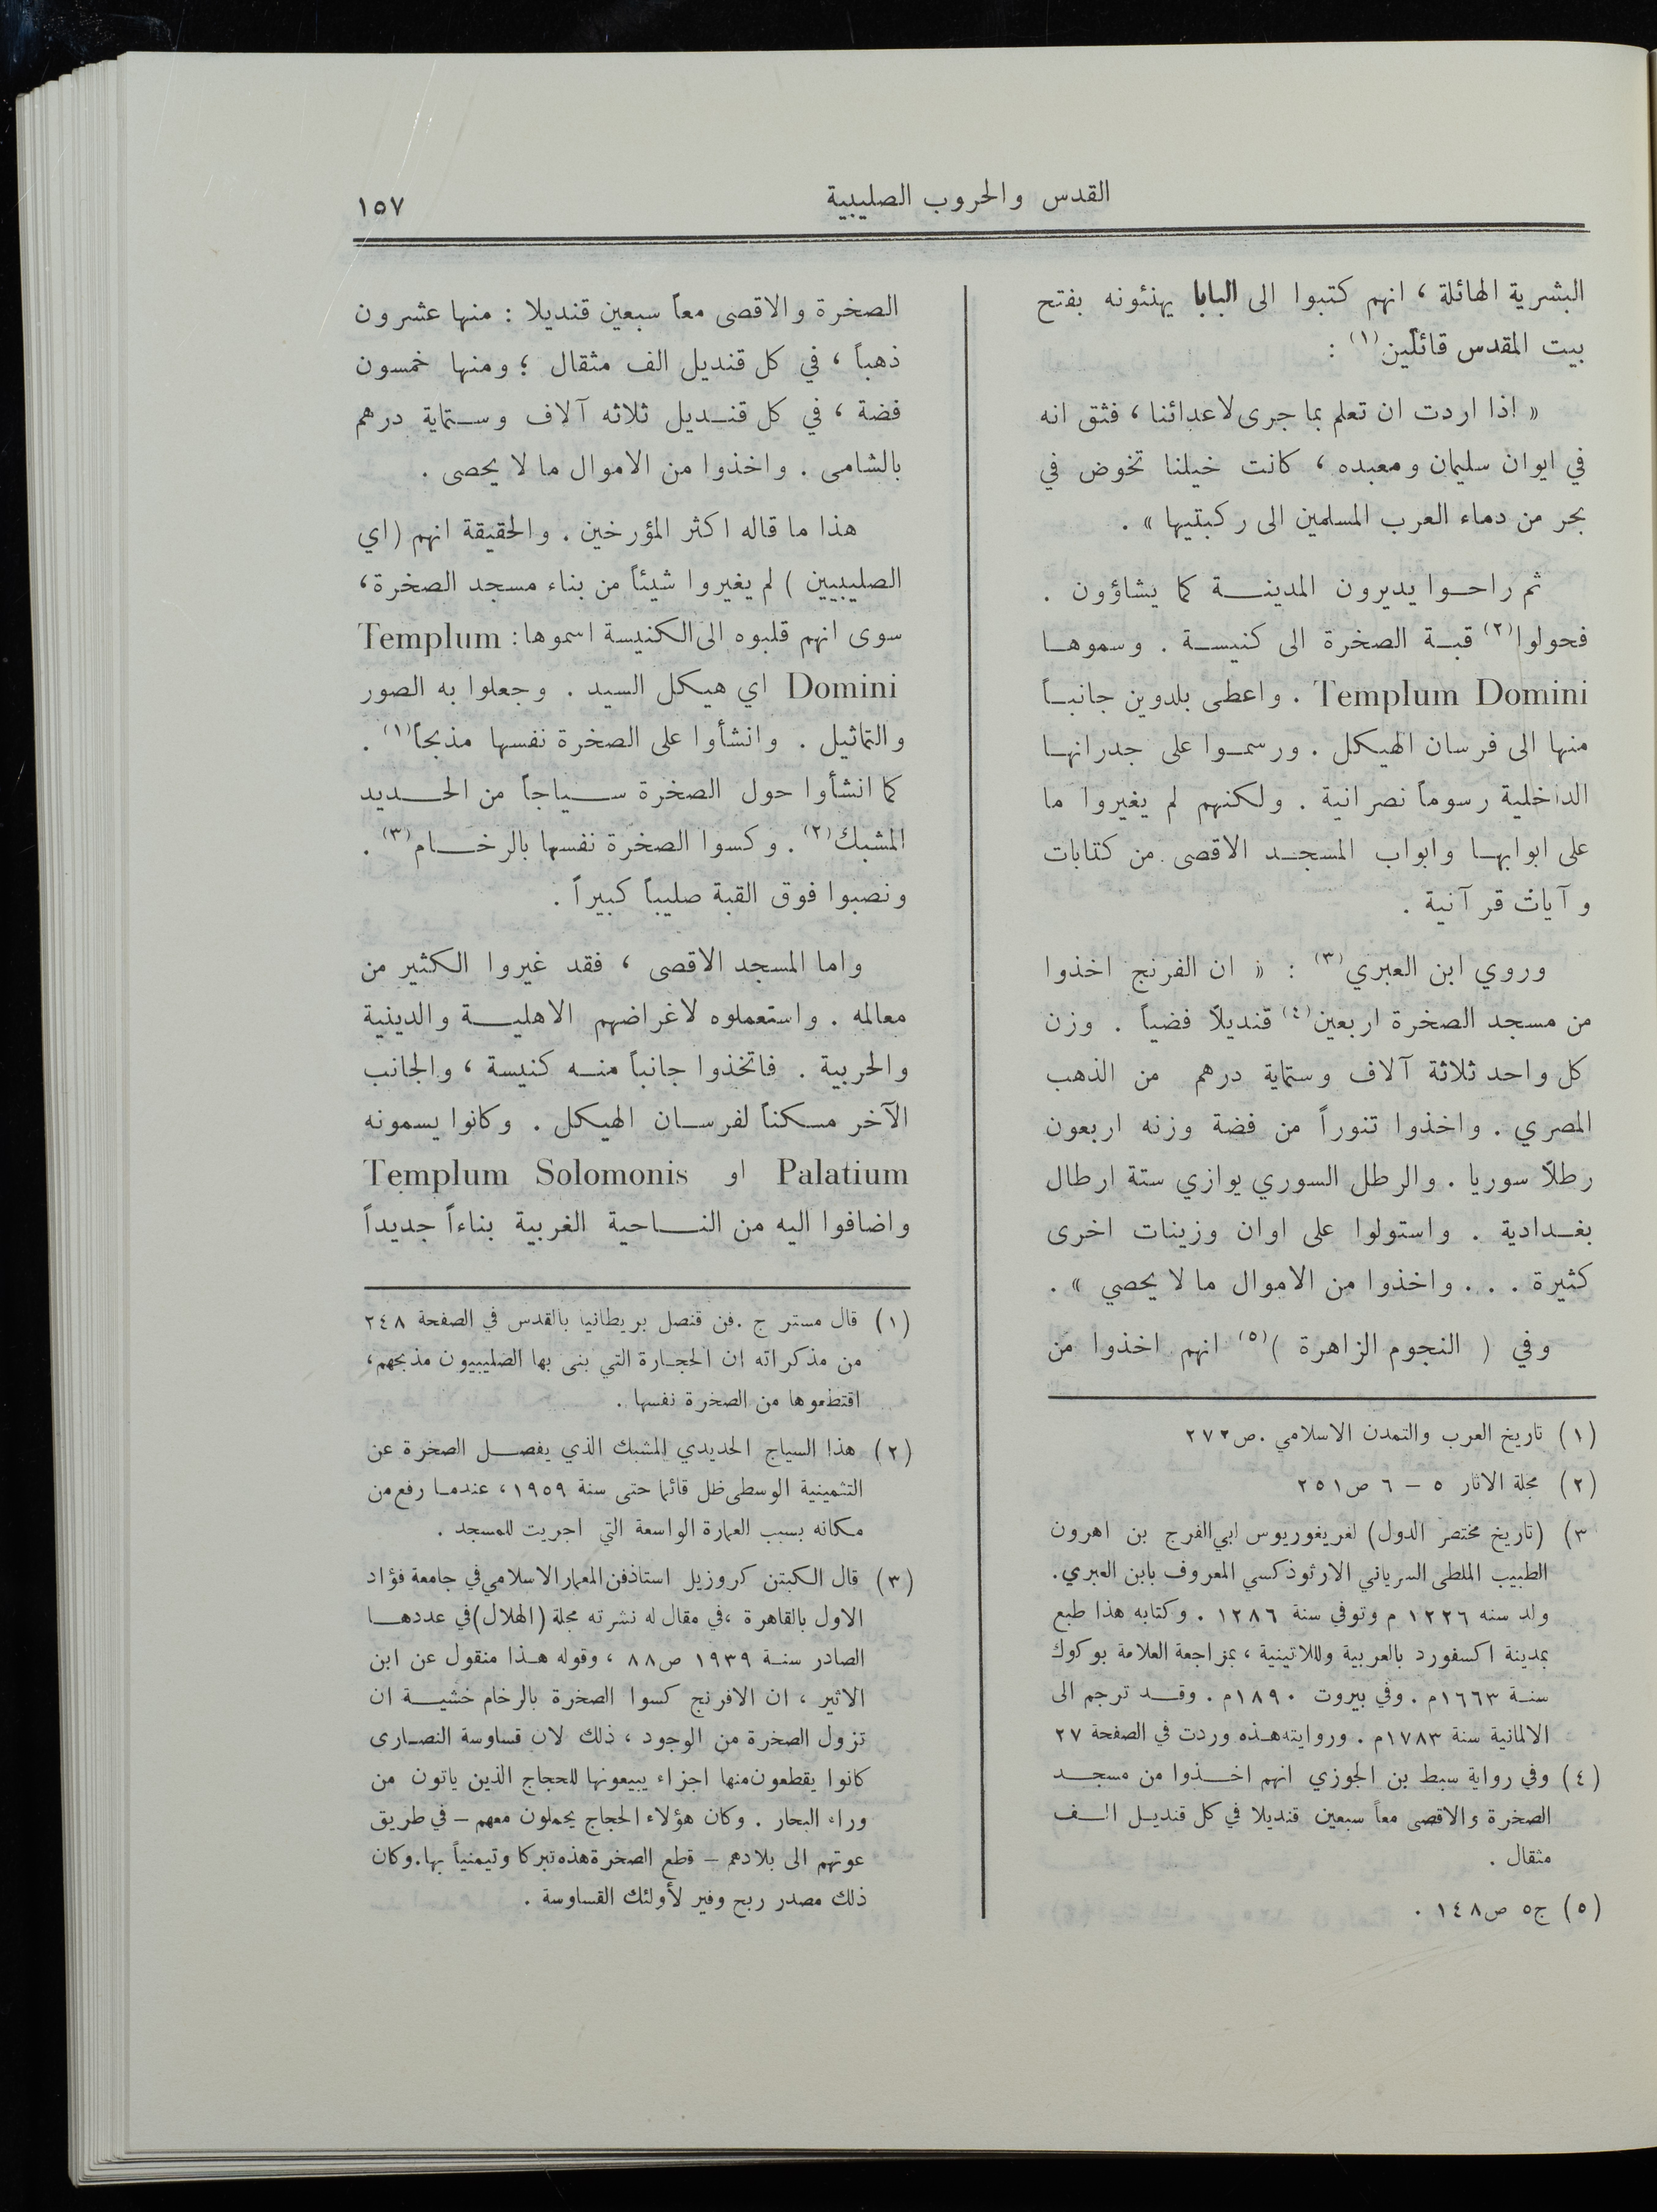 القدس والحروب الصليبية
١٥٧
البشرية الهائلة ، انهم كتبوا الى البابا يهنئونه بفتح
بيت المقدس قائلين(١) :
« اذا اردت ان تعلم بما جرى لاعدائنا ، فثق انه
في ايوان سليمان ومعبده ، كانت خيلنا تخوض في
بحر من دماء العرب المسلمين الى ركبتيها » .
ثم راحوا يديرون المدينة كما يشاؤون .
فحولوا(٢) قبة الصخرة الى كنيسة . وسموها
Templum Domini . واعطى بلدوين جانباً
منها الى فرسان الهيكل . ورسموا على جدرانها
الداخلية رسوماً نصرانية . ولكنهم لم يغيروا ما
على ابوابها وابواب المسجد الاقصى من كتابات
وآيات قرآنية .
وروي ابن العبري(٣) : « ان الفرنج اخذوا
من مسجد الصخرة اربعين(٤) قنديلاً فضياً . وزن
كل واحد ثلاثة آلاف وستماية درهم من الذهب
المصري . واخذوا تنوراً من فضة وزنه اربعون
رطلاً سوريا . والرطل السوري يوازي ستة ارطال
بغدادية . واستولوا على اوان وزينات اخرى
كثيرة . . . واخذوا من الاموال ما لا يحصي » .
وفي ( النجوم الزاهرة )(٥) انهم اخذوا من
(١) تاريخ العرب والتمدن الاسلامي .ص٢٧٢
(٢) مجلة الاثار ٥ – ٦ ص٢٥١
٣) (تاريخ مختصر الدول) لغريغوريوس ابي الفرج بن اهرون
الطبيب الملطى السرياني الارثوذكسي المعروف بابن العبري.
ولد سنه ١٢٢٦ م وتوفي سنة ١٢٨٦ . وكتابه هذا طبع
بمدينة اكسفورد بالعربية وللاتينية ، بمراجعة العلامة بوكوك
سنة ١٦٦٣م . وفي بيروت ١٨٩٠م . وقد ترجم الى
الالمانية سنة ١٧٨٣م . وروايته هذه وردت في الصفحة ٢٧
(٤) وفي رواية سبط بن الجوزي انهم اخذوا من مسجد
الصخرة والاقصى معاً سبعين قنديلا في كل قنديل الف
مثقال .
(٥) ج٥ ص١٤٨ .
الصخرة والاقصى معاً سبعين قنديلا : منها عشرون
ذهباً ، في كل قنديل الف مثقال ؛ ومنها خمسون
فضة ، في كل قنديل ثلاثه آلاف وستماية درهم
بالشامى . واخذوا من الاموال ما لا يحصى .
هذا ما قاله اكثر المؤرخين . والحقيقة انهم (اي
الصليبيين ) لم يغيروا شيئاً من بناء مسجد الصخرة،
سوى انهم قلبوه الى الكنيسة اسموها: Templum
Domini اي هيكل السيد . وجعلوا به الصور
والتماثيل . وانشأوا على الصخرة نفسها مذبحاً(١) .
كما انشأوا حول الصخرة سياجاً من الحديد
المشبك(٢) . وكسوا الصخرة نفسها بالرخام(٣) .
ونصبوا فوق القبة صليباً كبيراً .
واما المسجد الاقصى ، فقد غيروا الكثير من
معالمه . واستعملوه لاغراضهم الاهلية والدينية
والحربية . فاتخذوا جانباً منه كنيسة ، والجانب
الآخر مسكناً لفرسان الهيكل . وكانوا يسمونه
Palatium او Templum Solomonis
واضافوا اليه من الناحية الغربية بناءاً جديداً
(١) قال مستر ج .فن قنصل بريطانيا بالقدس في الصفحة ٢٤٨
من مذكراته ان الحجارة التي بنى بها الصليبيون مذبحهم،
اقتطعوها من الصخرة نفسها .
(٢) هذا السياج الحديدي المشبك الذي يفصل الصخرة عن
التثمينية الوسطى ظل قائما حتى سنة ١٩٥٩ ، عندما رفع من
مكانه بسبب العمارة الواسعة التي اجريت للمسجد .
(٣) قال الكبتن كروزيل استاذ فن المعمار الاسلامي في جامعة فؤاد
الاول بالقاهرة ،في مقال له نشرته مجلة (الهلال) في عددها
الصادر سنة ١٩٣٩ ص٨٨ ، وقوله هذا منقول عن ابن
الاثير ، ان الافرنج كسوا الصخرة بالرخام خشية ان
تزول الصخرة من الوجود ، ذلك لان قساوسة النصارى
كانوا يقطعون منها اجزاء يبيعونها للحجاج الذين ياتون من
وراء البحار . وكان هؤلاء الحجاج يحملون معهم – في طريق
عوتهم الى بلادهم – قطع الصخرة هذه تبركا وتيمنياً بها. وكان
ذلك مصدر ربح وفير لأولئك القساوسة .